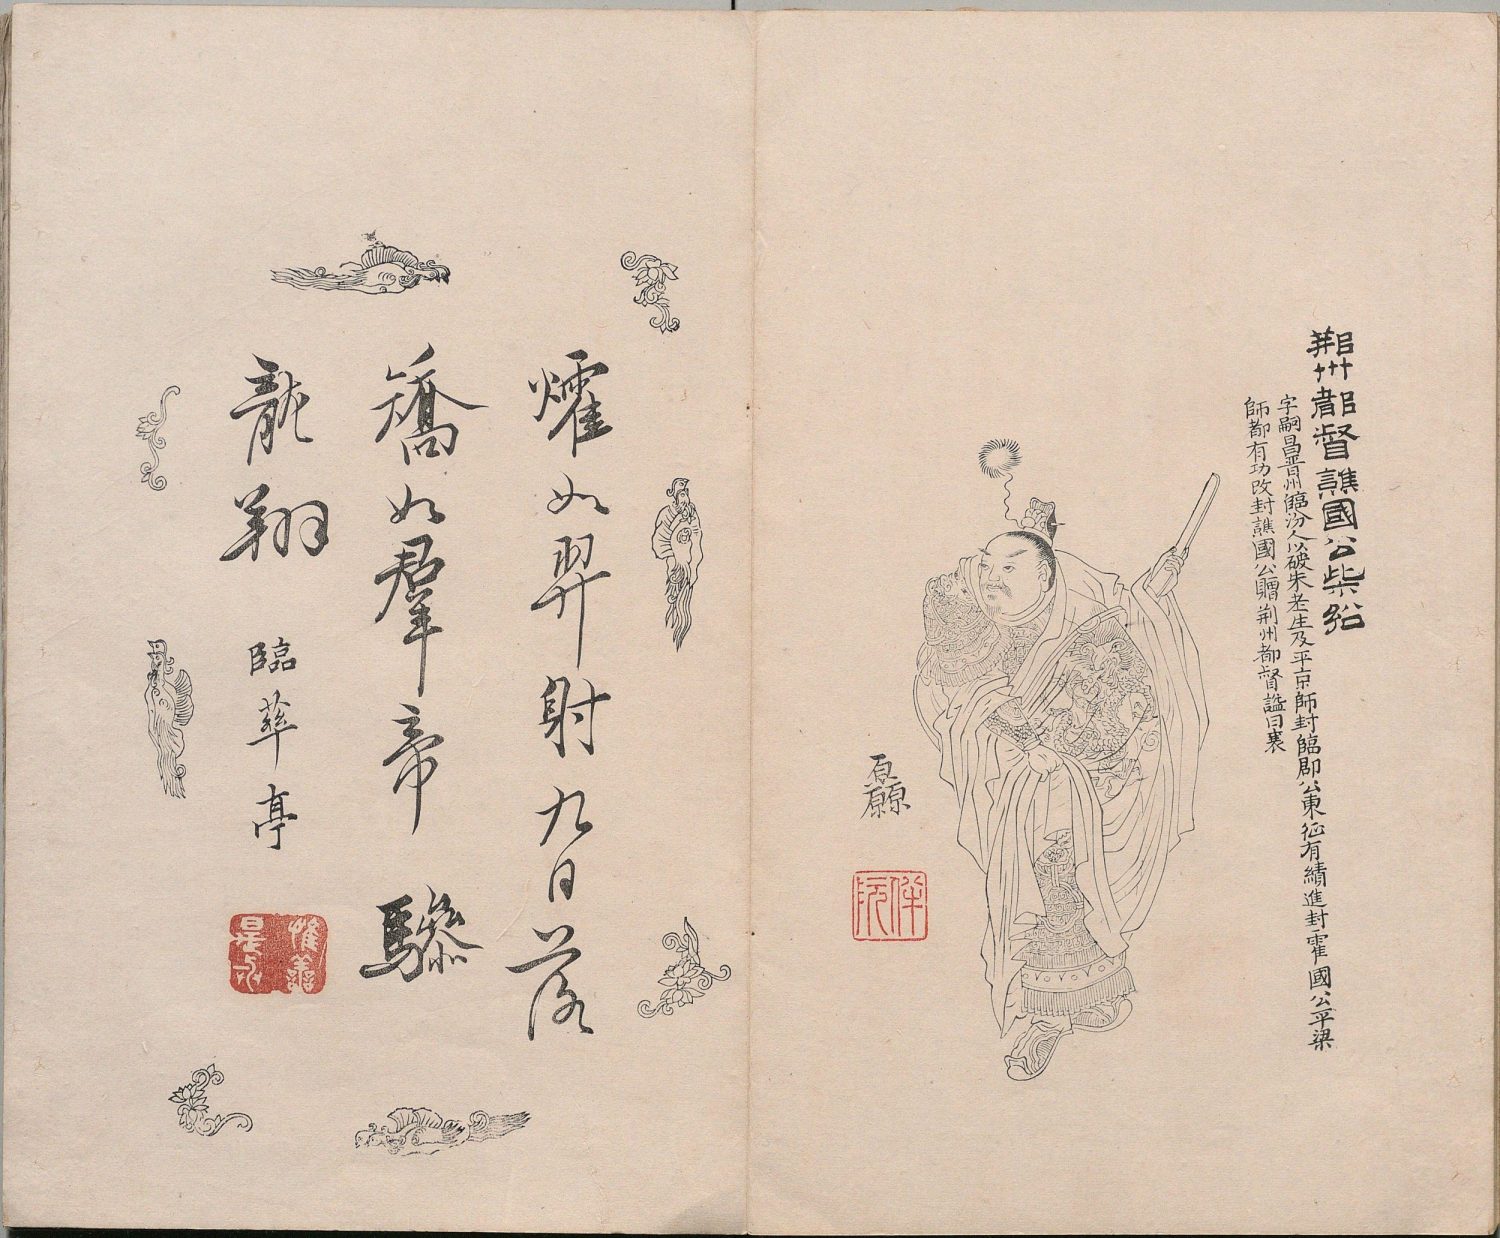 荊州都督譙國公柴紹
字嗣昌晉州臨汾人以破朱老生及平京師封臨郡公東征有績進封霍國公平梁
師都有功改封譙國公贈荊州都督謚曰襄
伴阮
㸌如羿射九日落
矯如羣帝驂
龍翔
臨華亭